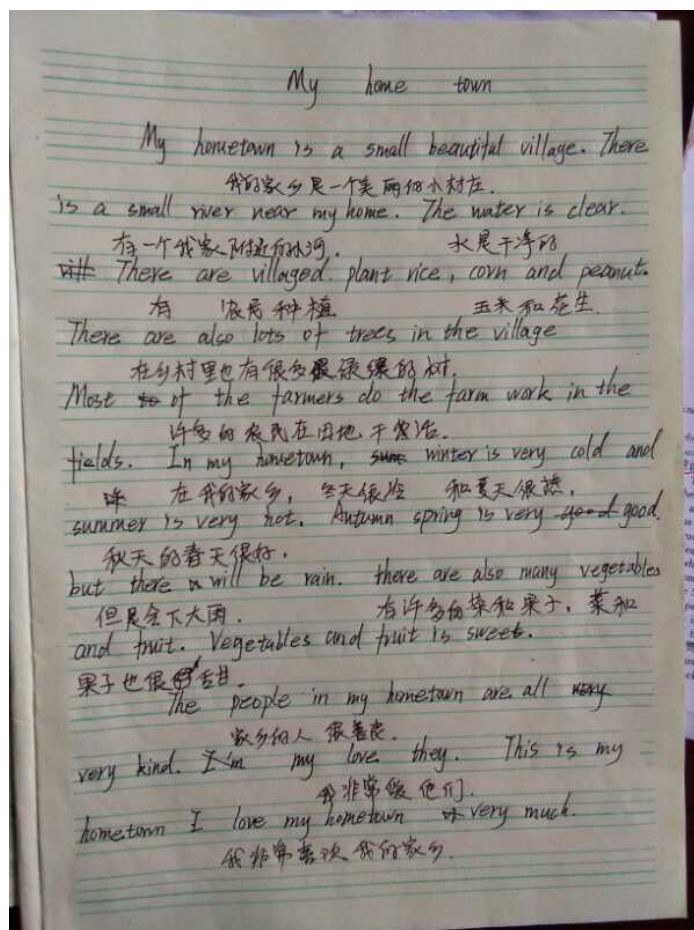 My home town
My hometown is a small beautiful village. There
我的家乡是一个美丽的小村庄.
is a small river near my home. The water is clear.
有一个我家附近的小河. 水是干净的
There are villaged plant rice, corn and peanut.
有 农民种植 玉米和花生.
There are also lots of trees in the village
在乡村里也有很多 的树.
Most of the farmers do the farm work in the
许多的农民在田地干农活.
fields. In my hometown, winter is very cold and
在我的家乡, 冬天很冷 和夏天很热,
summer is very hot. Autumn spring is very good.
秋天的春天很好,
but there will be rain. there are also many vegetables
但是会下大雨. 有许多的菜和果子, 菜和
and fruit. Vegetables and fruit is sweet.
果子也很甜
The people in my hometown are all very
家乡的人 很善良.
very kind. I'm my love they. This is my
我非常爱他们.
hometown I love my hometown very much.
我非常喜欢我的家乡.